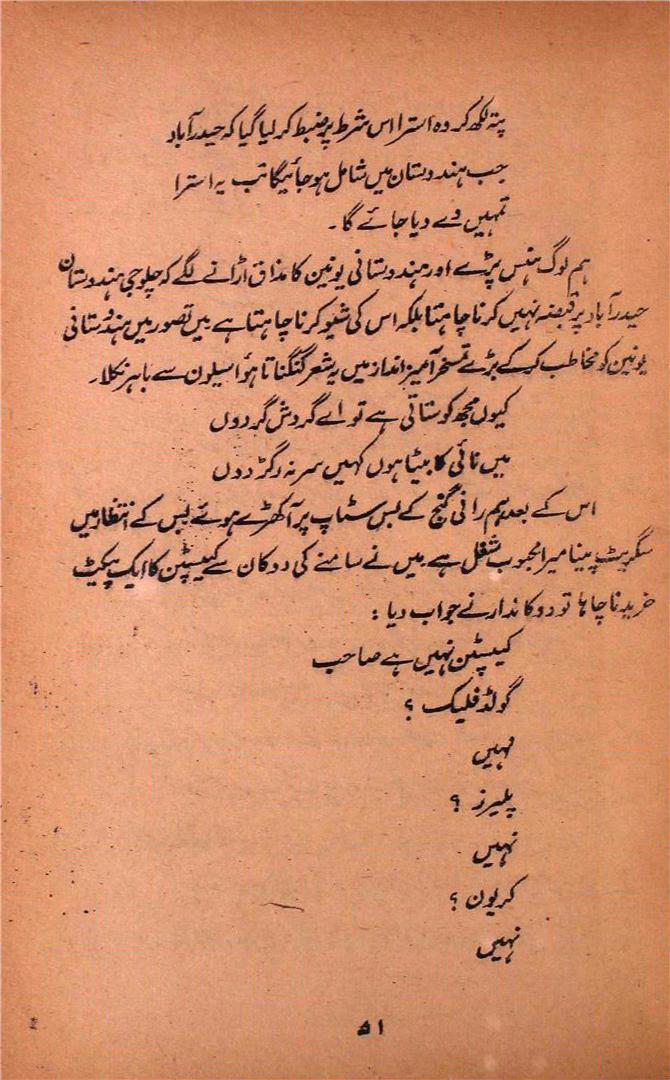 پتہ لکھ کر وہ استرا اس شرط پر ضبط کر لیا گیا کہ حیدرآباد
جب ہندوستان میں شامل ہو جائیگا تب یہ استرا
تمہیں دے دیا جائے گا۔
ہم لوگ ہنس پڑے اور ہندوستانی یونین کا مذاق اڑانے لگے کہ چلو جی ہندوستان
حیدرآباد پر قبضہ نہیں کرنا چاہتا بلکہ اس کی شیو کرنا چاہتا ہے میں تصور میں ہندوستانی
یونین کو مخاطب کر کے بڑے تمسخر آمیز انداز میں یہ شعر گنگناتا ہوا سیلون سے باہر نکلا۔
کیوں مجھ کو ستاتی ہے تو اے گردش گردوں
میں نائی کا بیٹا ہوں کہیں سر نہ رگڑ دوں
اس کے بعد ہم رانی گنج کے بس سٹاپ پر آ کھڑے ہوئے بس کے انتظار میں
سگریٹ پینا میرا محبوب شغل ہے میں نے سامنے کی دوکان سے کیپسٹن کا ایک پیکیٹ
خریدنا چاہا تو دوکاندار نے جواب دیا :
کیپسٹن نہیں ہے صاحب
گولڈ فلیک ؟
نہیں
پلیرز ؟
نہیں
کریون ؟
نہیں
۵۱